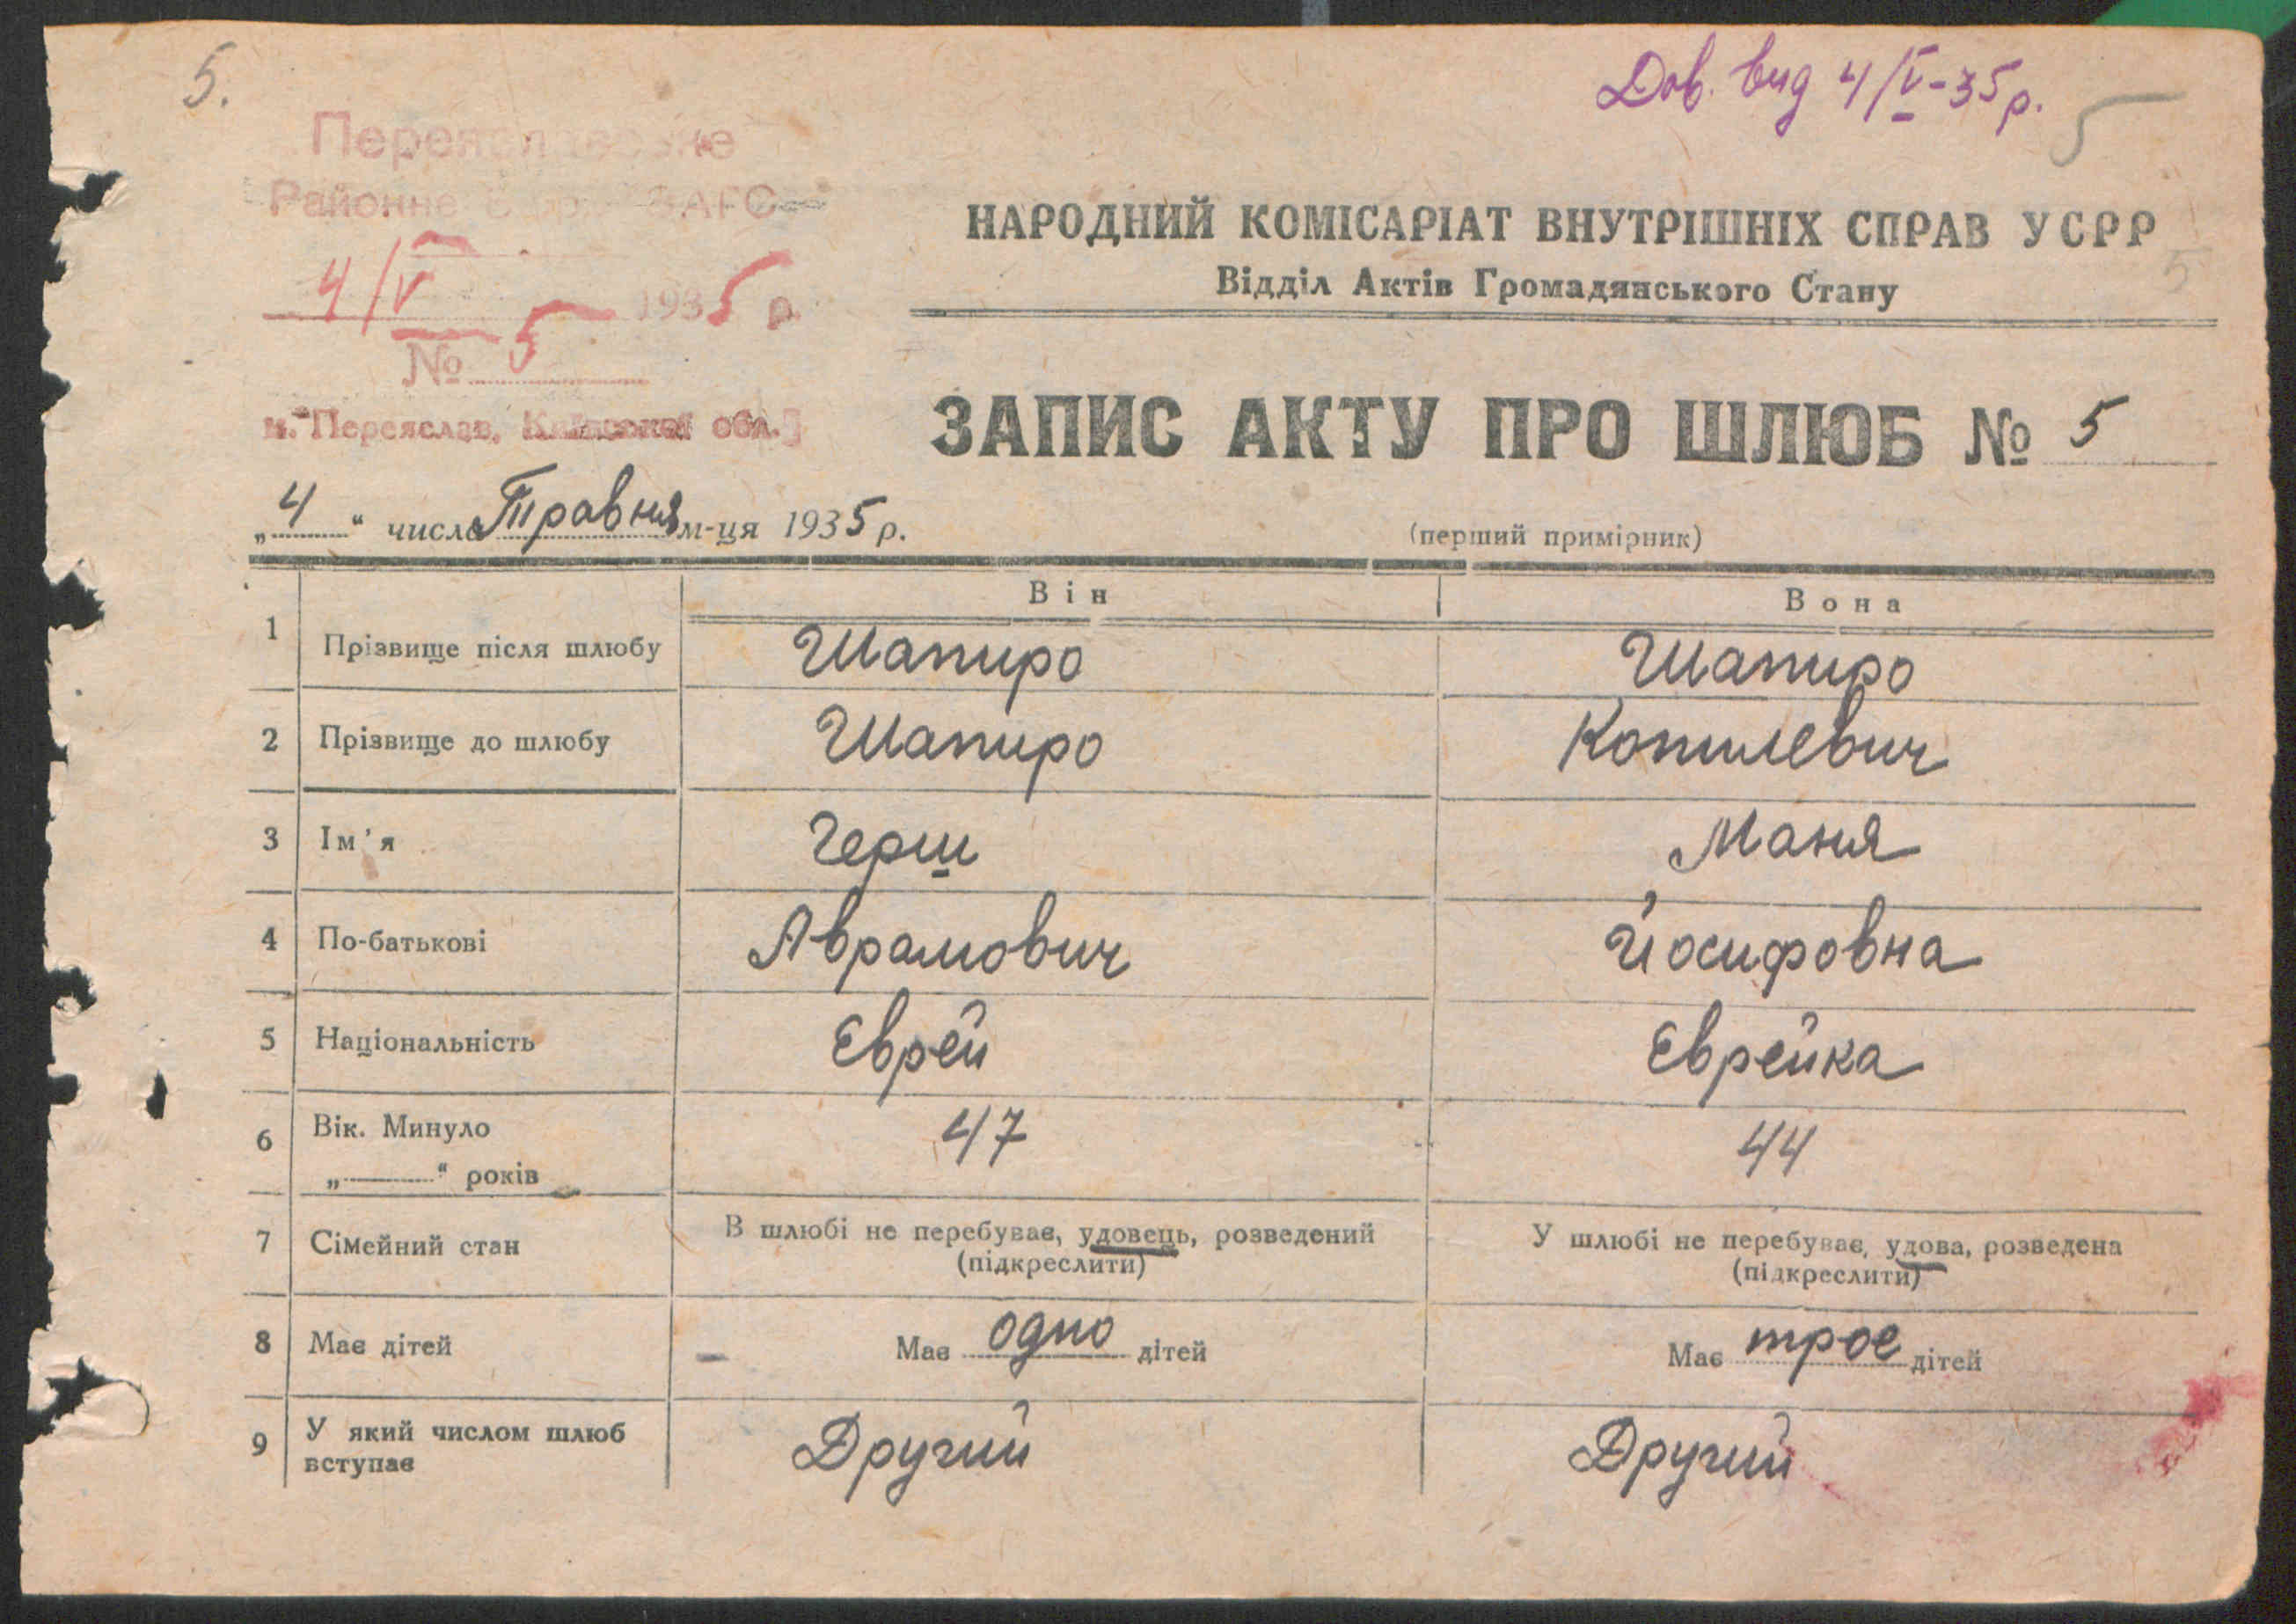 5.
Дов. вид 4/V-35р.
5
Районне ЗАГС
4/V 1935 р.
№ 5
м. Переяслав, Київської обл.
НАРОДНИЙ КОМІСАРІАТ ВНУТРІШНІХ СПРАВ УСРР
Відділ Актів Громадянського Стану
5
ЗАПИС АКТУ ПРО ШЛЮБ № 5
„4“ числа Травня м-ця 1935 р.
(перший примірник)
Він Вона
1 Прізвище після шлюбу Шапиро Шапиро
2 Прізвище до шлюбу Шапиро Копилевич
3 Ім'я Герш Маня
4 По-батькові Аврамович Йосифовна
5 Національність Єврей Єврейка
6 Вік. Минуло 47 44
„ “ років
7 Сімейний стан В шлюбі не перебуває, удовець, розведений У шлюбі не перебуває, удова, розведена
(підкреслити) (підкреслити)
8 Має дітей Має одно дітей Має троє дітей
9 У який числом шлюб Другий Другий
вступає